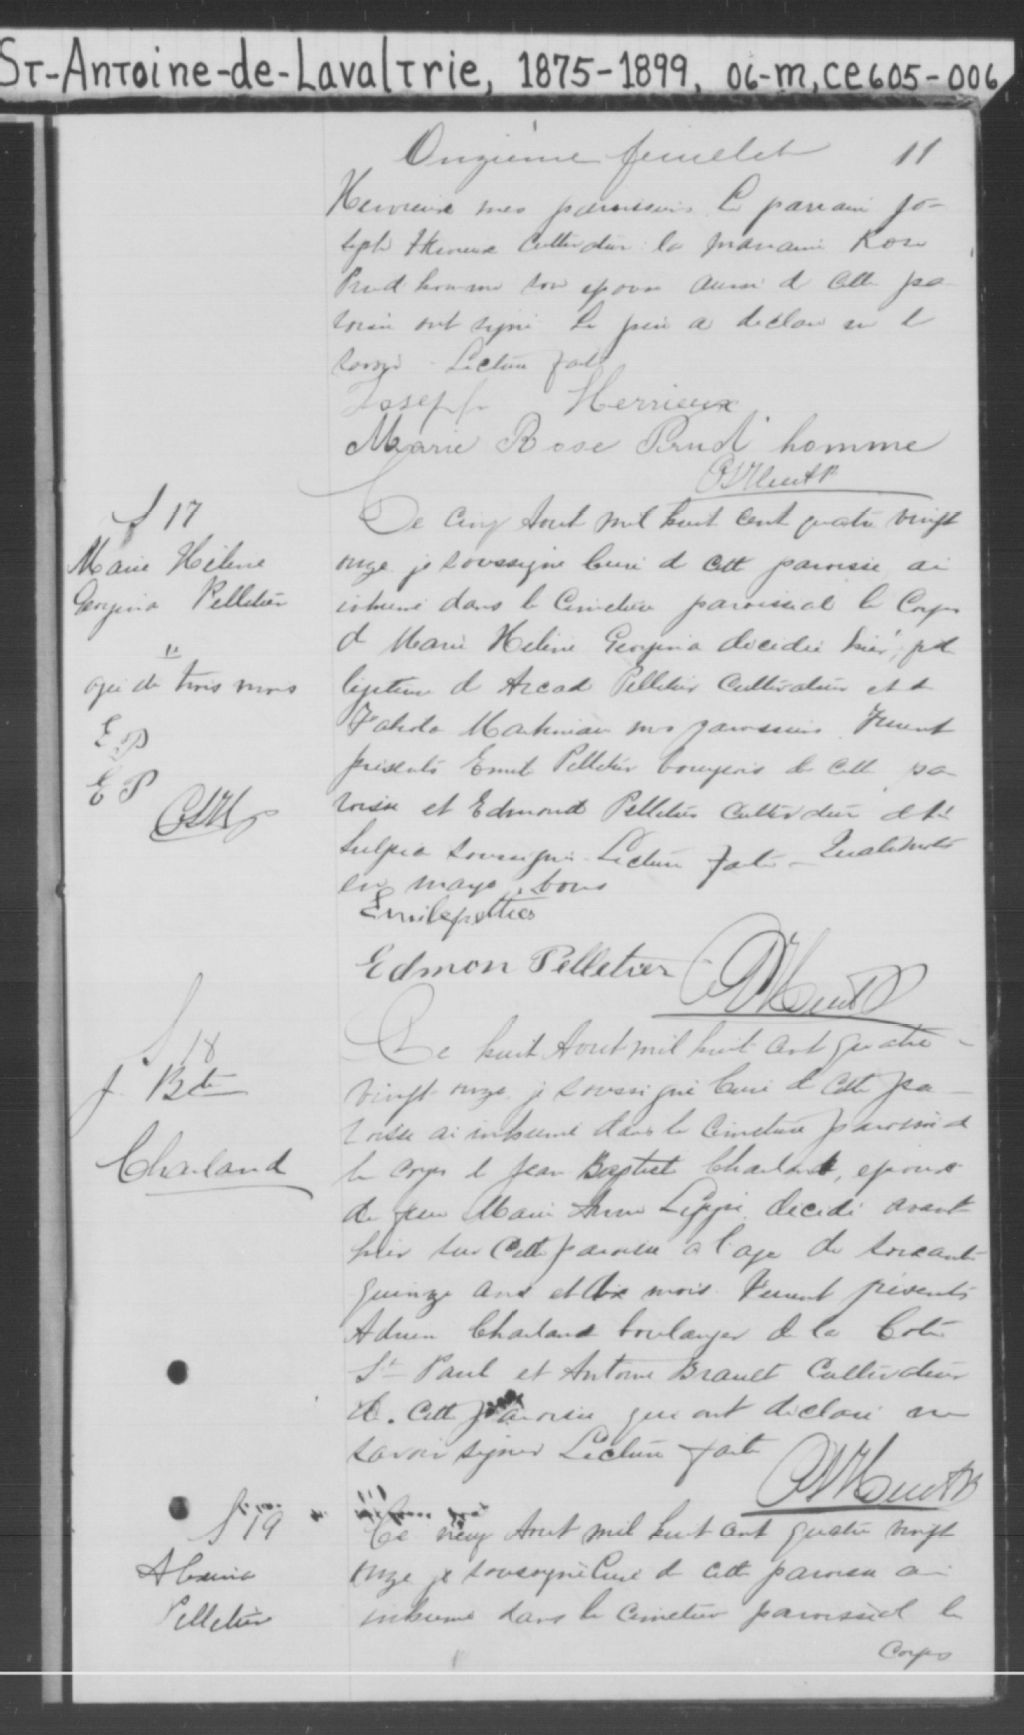 St-Antoine-de-Lavaltrie, 1875-1899, 06-m, ce605-006
Onzième feuillet 11
Herrieux mes paroissiens Le parrain Jo-
seph Herrieux Cultivateur la marraine Rose
Prud homme son epouse aussi de cette pa
roisse ont signé Le père a declaré ne le
savoir Lecture faite
Joseph Herrieux
Marie Rose Prud homme
S 17
Marie Hélène
Georgina Pelletier
"
agée de trois mois
E P
E P
Ce cinq Aout mil huit cent quatre vingt
onze je soussigné Curé de cette paroisse ai
inhumé dans le Cimetière paroissial le Corps
de Marie Helène Georgina decedée hier,
légitime de Arcad Pelletier Cultivateur et de
mes paroissiens Furent
présents Emile Pelletier bourgeois de cette pa
roisse et Edmond Pelletier Cultivateur de St
Sulpice soussignés Lecture faite
en marge bons
Emile pelletier
Edmon Pelletier
S 18
J. Bte
Charland
Ce huit Aout mil huit cent quatre-
vingt-onze je soussigné Curé de cette pa-
roisse ai inhumé dans le Cimetière paroissial
le Corps de Jean Baptiste Charland, epoux
de feu Marie Anne decedé avant
hier sur Cette paroisse a l'age de soixante
quinze ans et mois Furent présents
Adrien Charland boulanger de la Cote
St Paul et Antoine Brault Cultivateur
de cette paroisse qui ont declaré ne
savoir signer Lecture faite
S 19
Pelletier
Ce neuf Aout mil huit cent quatre vingt
onze je soussigné Curé de cette paroisse ai
inhumé dans le Cimetière paroissial le
Corps